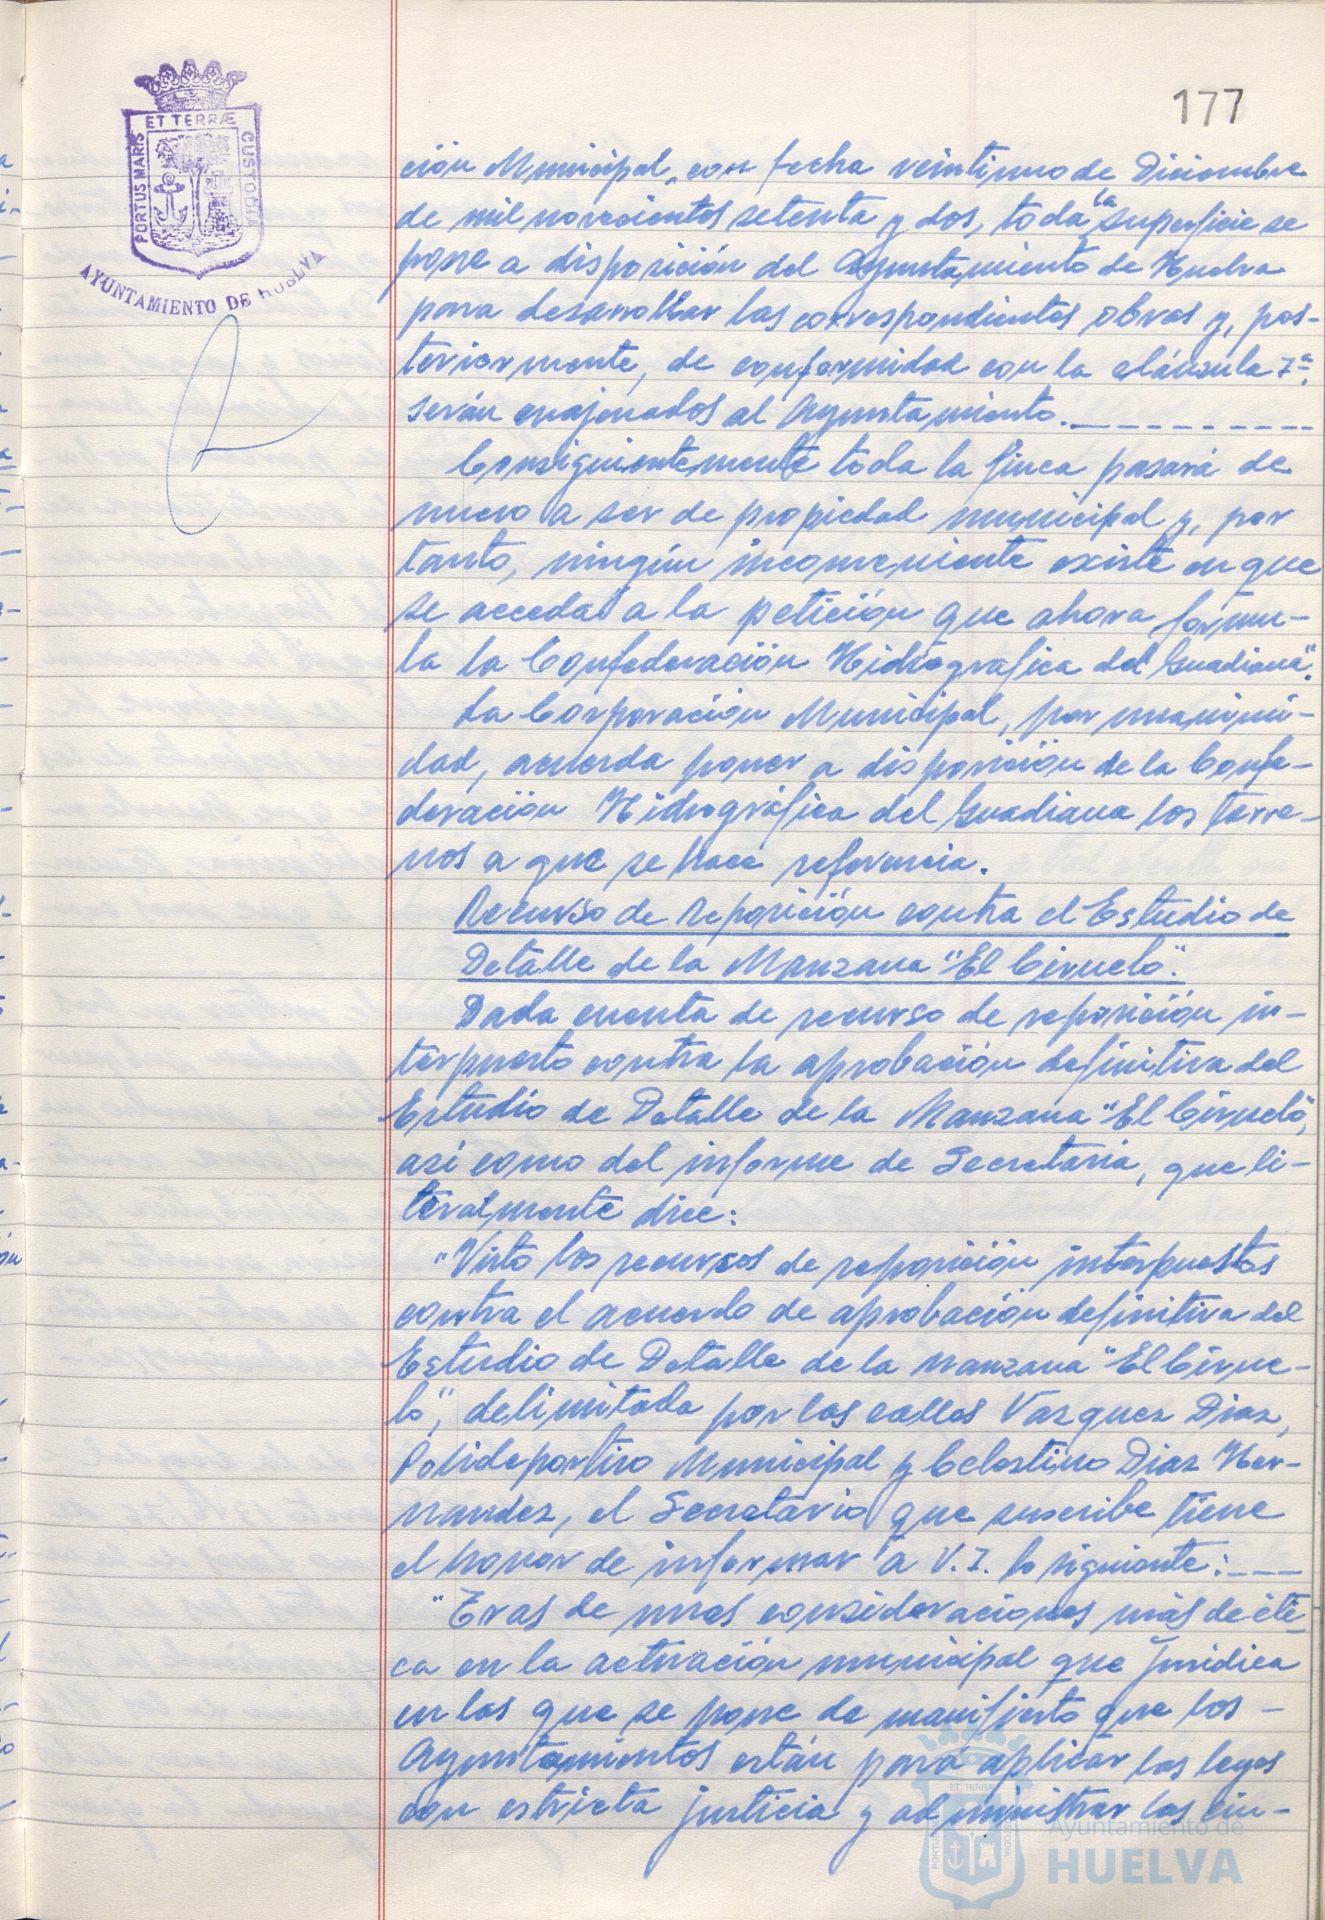 177
ET TERRÆ
PORTUS MARIS
CUSTODIA
AYUNTAMIENTO DE HUELVA
ción Municipal, con fecha veintiuno de Diciembre
de mil novecientos setenta y dos, toda la superficie se
pone a disposición del Ayuntamiento de Huelva
para desarrollar las correspondientes obras y, pos-
teriormente, de conformidad con la cláusula 7ª,
serán enajenados al Ayuntamiento.
Consiguientemente toda la finca pasará de
nuevo a ser de propiedad municipal y, por
tanto, ningún inconveniente existe en que
se acceda a la petición que ahora formu-
la la Confederación Hidrografica del Guadiana".
La Corporación Municipal, por unanimi-
dad, acuerda poner a disposición de la Confe-
deración Hidrográfica del Guadiana los terre-
nos a que se hace referencia.
Recurso de Reposición contra el Estudio de
Detalle de la Manzana "El Ciruelo".
Dada cuenta de recurso de reposición in-
terpuesto contra la aprobación definitiva del
Estudio de Detalle de la Manzana "El Ciruelo",
asi como del informe de Secretaria, que li-
teralmente dice:
"Visto los recursos de reposición interpuestos
contra el acuerdo de aprobación definitiva del
Estudio de Detalle de la manzana "El Cirue-
lo", delimitada por las calles Vazquez Diaz,
Polideportivo Municipal y Celestino Diaz Her-
nandez, el Secretario que suscribe tiene
el honor de informar a V.I. lo siguiente:
"Tras de unas consideraciones más de éti-
ca en la actuación municipal que juridica
en las que se pone de manifiesto que los
Ayuntamientos están para aplicar las leyes
con estricta justicia y administrar las ciu-
Ayuntamiento de
HUELVA